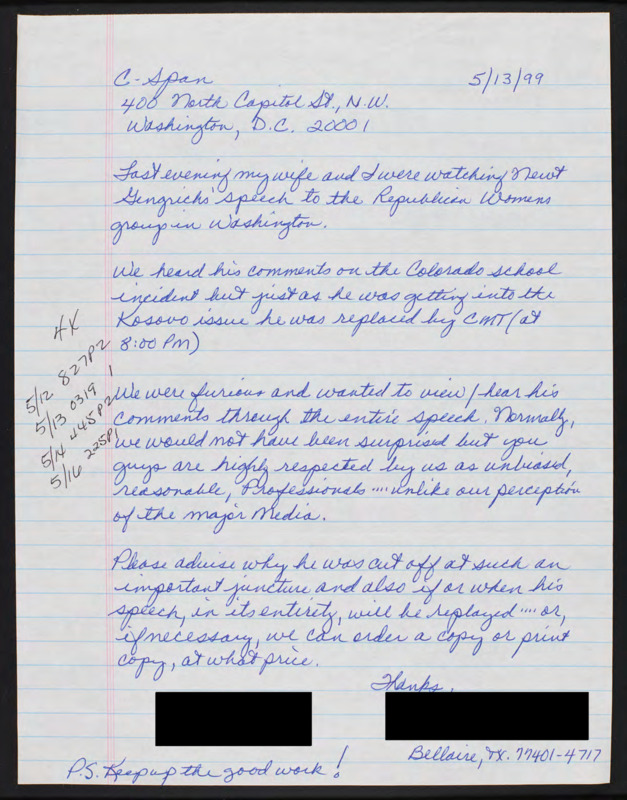 C-Span 5/13/99
400 North Capitol St., N.W.
Washington, D.C. 20001
Last evening my wife and I were watching Newt
Gingrichs speech to the Republican Womens
group in Washington.
We heard his comments on the Colorado school
incident but just as he was getting into the
Kosovo issue he was replaced by CMT (at
8:00 PM)
4X
5/12 827P2
5/13 0319 1
5/14 445P2
5/16 225P1
We were furious and wanted to view/hear his
comments through the entire speech. Normally,
we would not have been surprised but you
guys are highly respected by us as unbiasd,
reasonable, Professionals .... unlike our perception
of the major Media.
Please advise why he was cut off at such an
important juncture and also if or when his
speech, in its entirety, will be replayed .... or,
if necessary, we can order a copy or print
copy, at what price.
Thanks,
Bellaire, TX. 77401-4717
P.S. Keep up the good work!